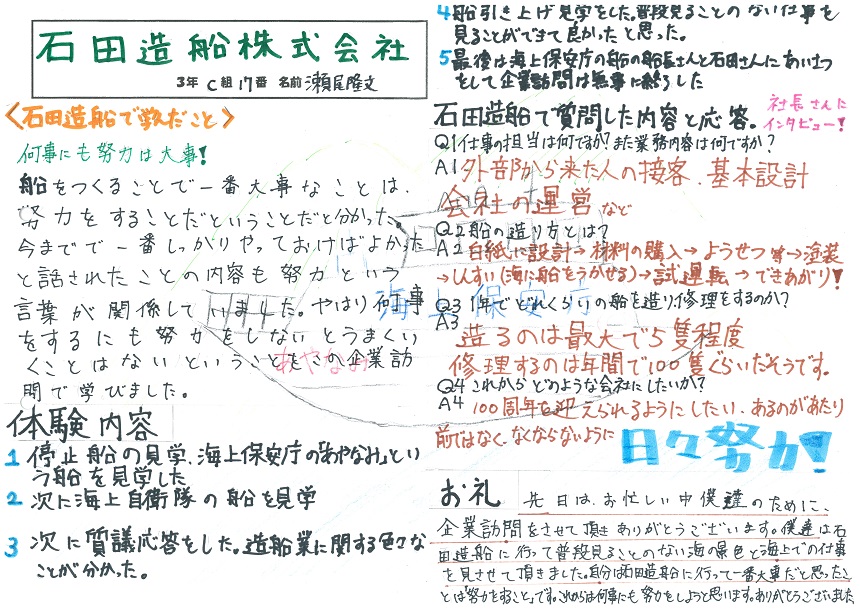 石田造船株式会社
3年 C組 17番 名前 瀬尾隆文
<石田造船で学んだこと>
何事にも努力は大事!
船をつくることで一番大事なことは、
努力をすることだということだと分かった。
今までで一番しっかりやっておけばよかった
と話されたことの内容も努力という
言葉が関係していました。やはり何事
をするにも努力をしないとうまくい
くことはないということをこの企業訪
問で学びました。
海上保安庁
あやなみ
体験内容
1 停止船の見学、海上保安庁の「あやなみ」とい
う船を見学した
2 次に海上自衛隊の船を見学
3 次に質議応答をした。造船業に関する色々な
ことが分かった。
4 船引き上げ見学をした。普段見ることのない仕事を
見ることができて良かったと思った。
5 最後は海上保安庁の船の船長さんと石田さんにあいさつ
をして企業訪問は無事に終了した
石田造船で質問した内容と応答。
社長さんに
インタビュー!
Q1 仕事の担当は何ですか?また業務内容は何ですか?
A1 外部から来た人の接客、基本設計
会社の運営など
Q2 船の造り方とは?
A2 白紙に設計→材料の購入→ようせつ→塗装
→しんすい(海に船をうかせる)→試運転→できあがり!
Q3 1年でどれくらいの船を造り修理をするのか?
A3
造るのは最大で5隻程度
修理するのは年間で100隻ぐらいだそうです。
Q4 これからどのような会社にしたいか?
A4 100周年を迎えられるようにしたい、あるのがあたり
前ではなくなくならないように
日々努力!
お礼
先日は、お忙しい中僕達のために、
企業訪問をさせて頂きありがとうございます。僕達は石
田造船に行って普段見ることのない海の景色と海上での仕事
を見させて頂きました。自分は石田造船に行って一番大事だと思ったこ
とは「努力をすること」です。これからは何事にも努力をしようと思います。ありがとうございました